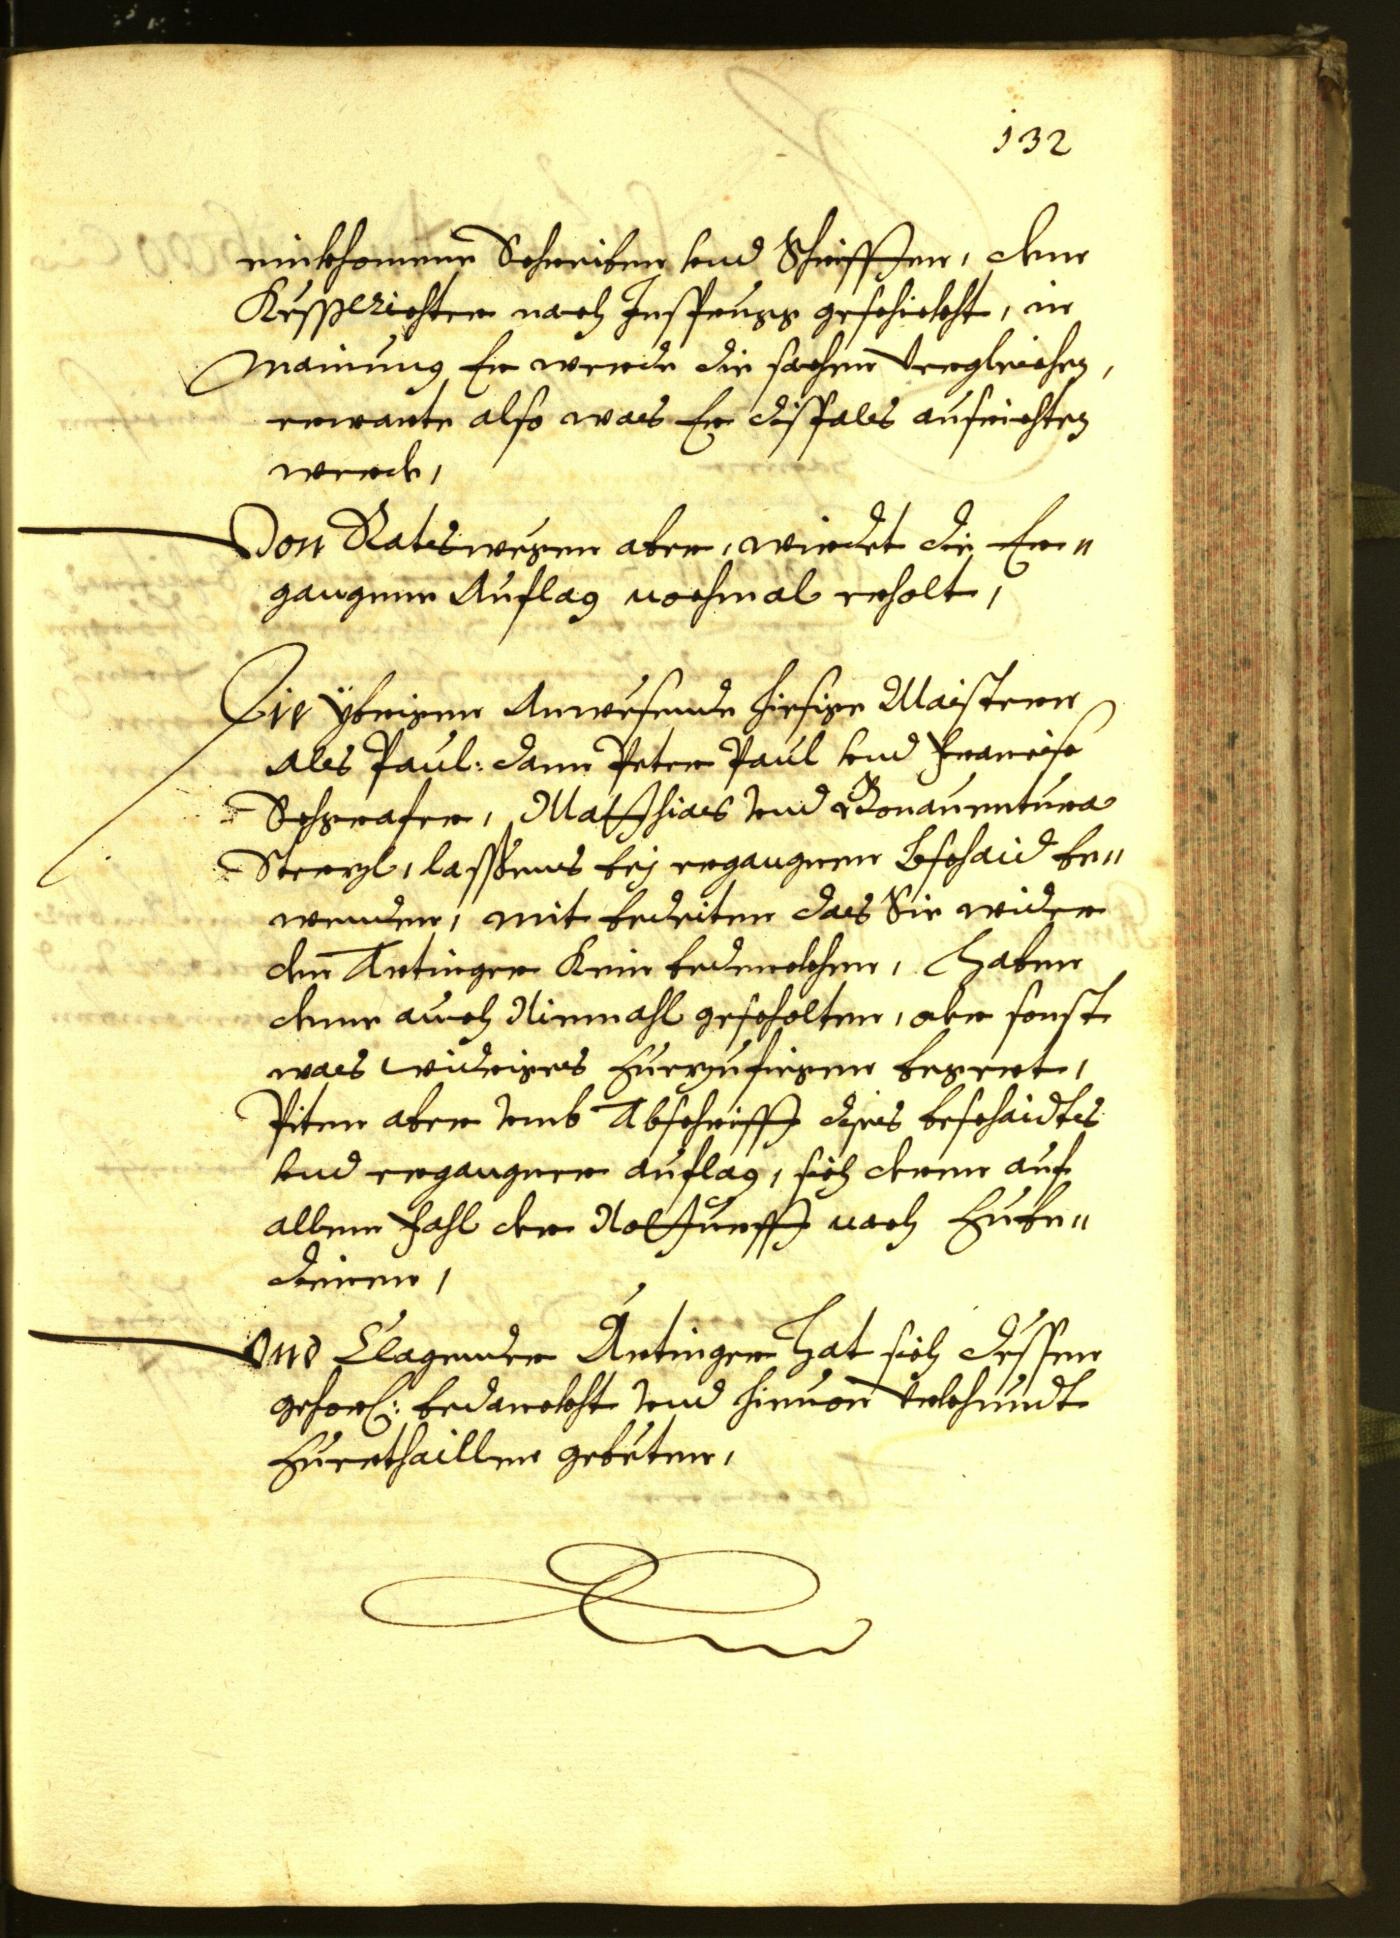 132
einkhomene Schreiben vnd Schrifften, dem
Kesslrichter nach Jnsprugg geschickht, in
mainung Er werde die sachen vergleichen,
erwarte also was Er dissfals aufrichten
werde,
Von Ratswegen aber, wirdet die Er¬
gangene Auflag nochmal erholt,
Die ybrigen Anwesende hiesige Maistern
als Paul: dann Peter Paul vnd Francisc
Schgrafer, Matthias vnd Bonauentura
Sterzl, lassens bej ergangnem bschaid be¬
wenden, mit bedeiten das Sie wider
den Artinger Kein bedenckhen, Haben
denne auch Niemahl gescholten, oder sonst
was widriges zuezufiegen begert,
Piten aber vmb Abschrifft dises beschaidts
vnd ergangner auflag, sich deren auf
allem fahl der Notturfft nach zube¬
dienen,
Vnd Clagender Artinger hat sich dessen
gehorsl: bedanckht vnd hieuon vrkhundt
zuerthaillen gebeten,